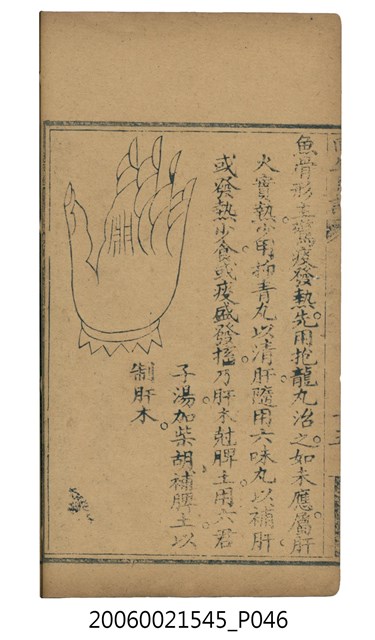 魚骨形主驚痰發熱先用抱龍丸治之如未應屬肝
火實熱少用抑青丸以清肝隨用六味丸以補肝
或發熱少食或痰盛發搐乃肝木尅脾土用六君
子湯加柴胡補脾土以
制肝木
20060021545_P046